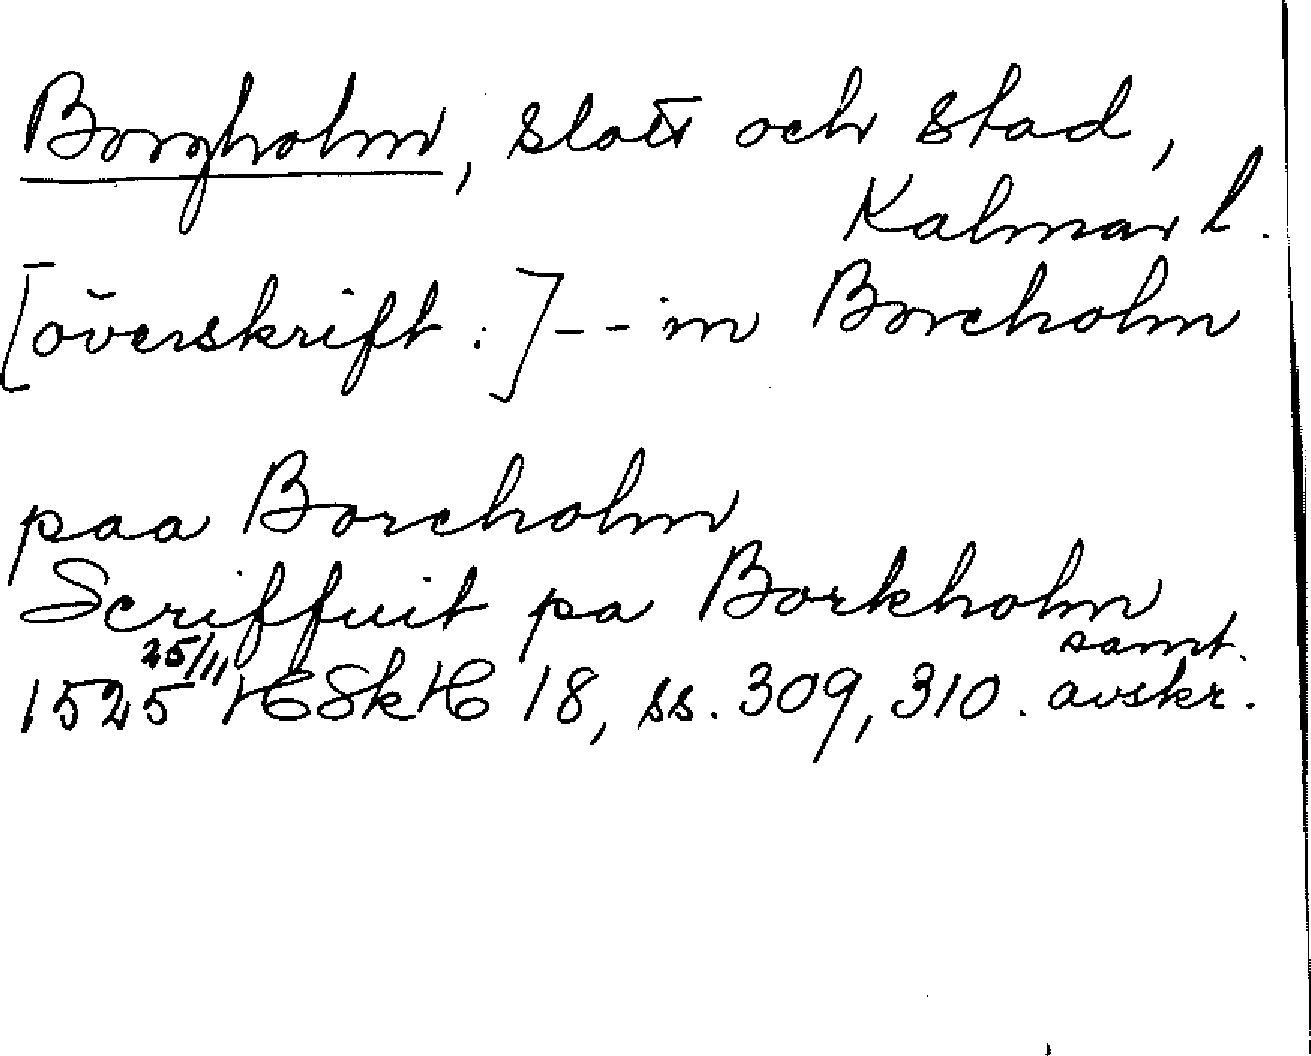 Borgholm, slott och stad,
Kalmar l.
[överskrift:]-- in Borcholm
paa Borcholm
Scriffuit pa Borkholm
1525 25/11 HSkH 18, ss. 309, 310. samt. avskr.